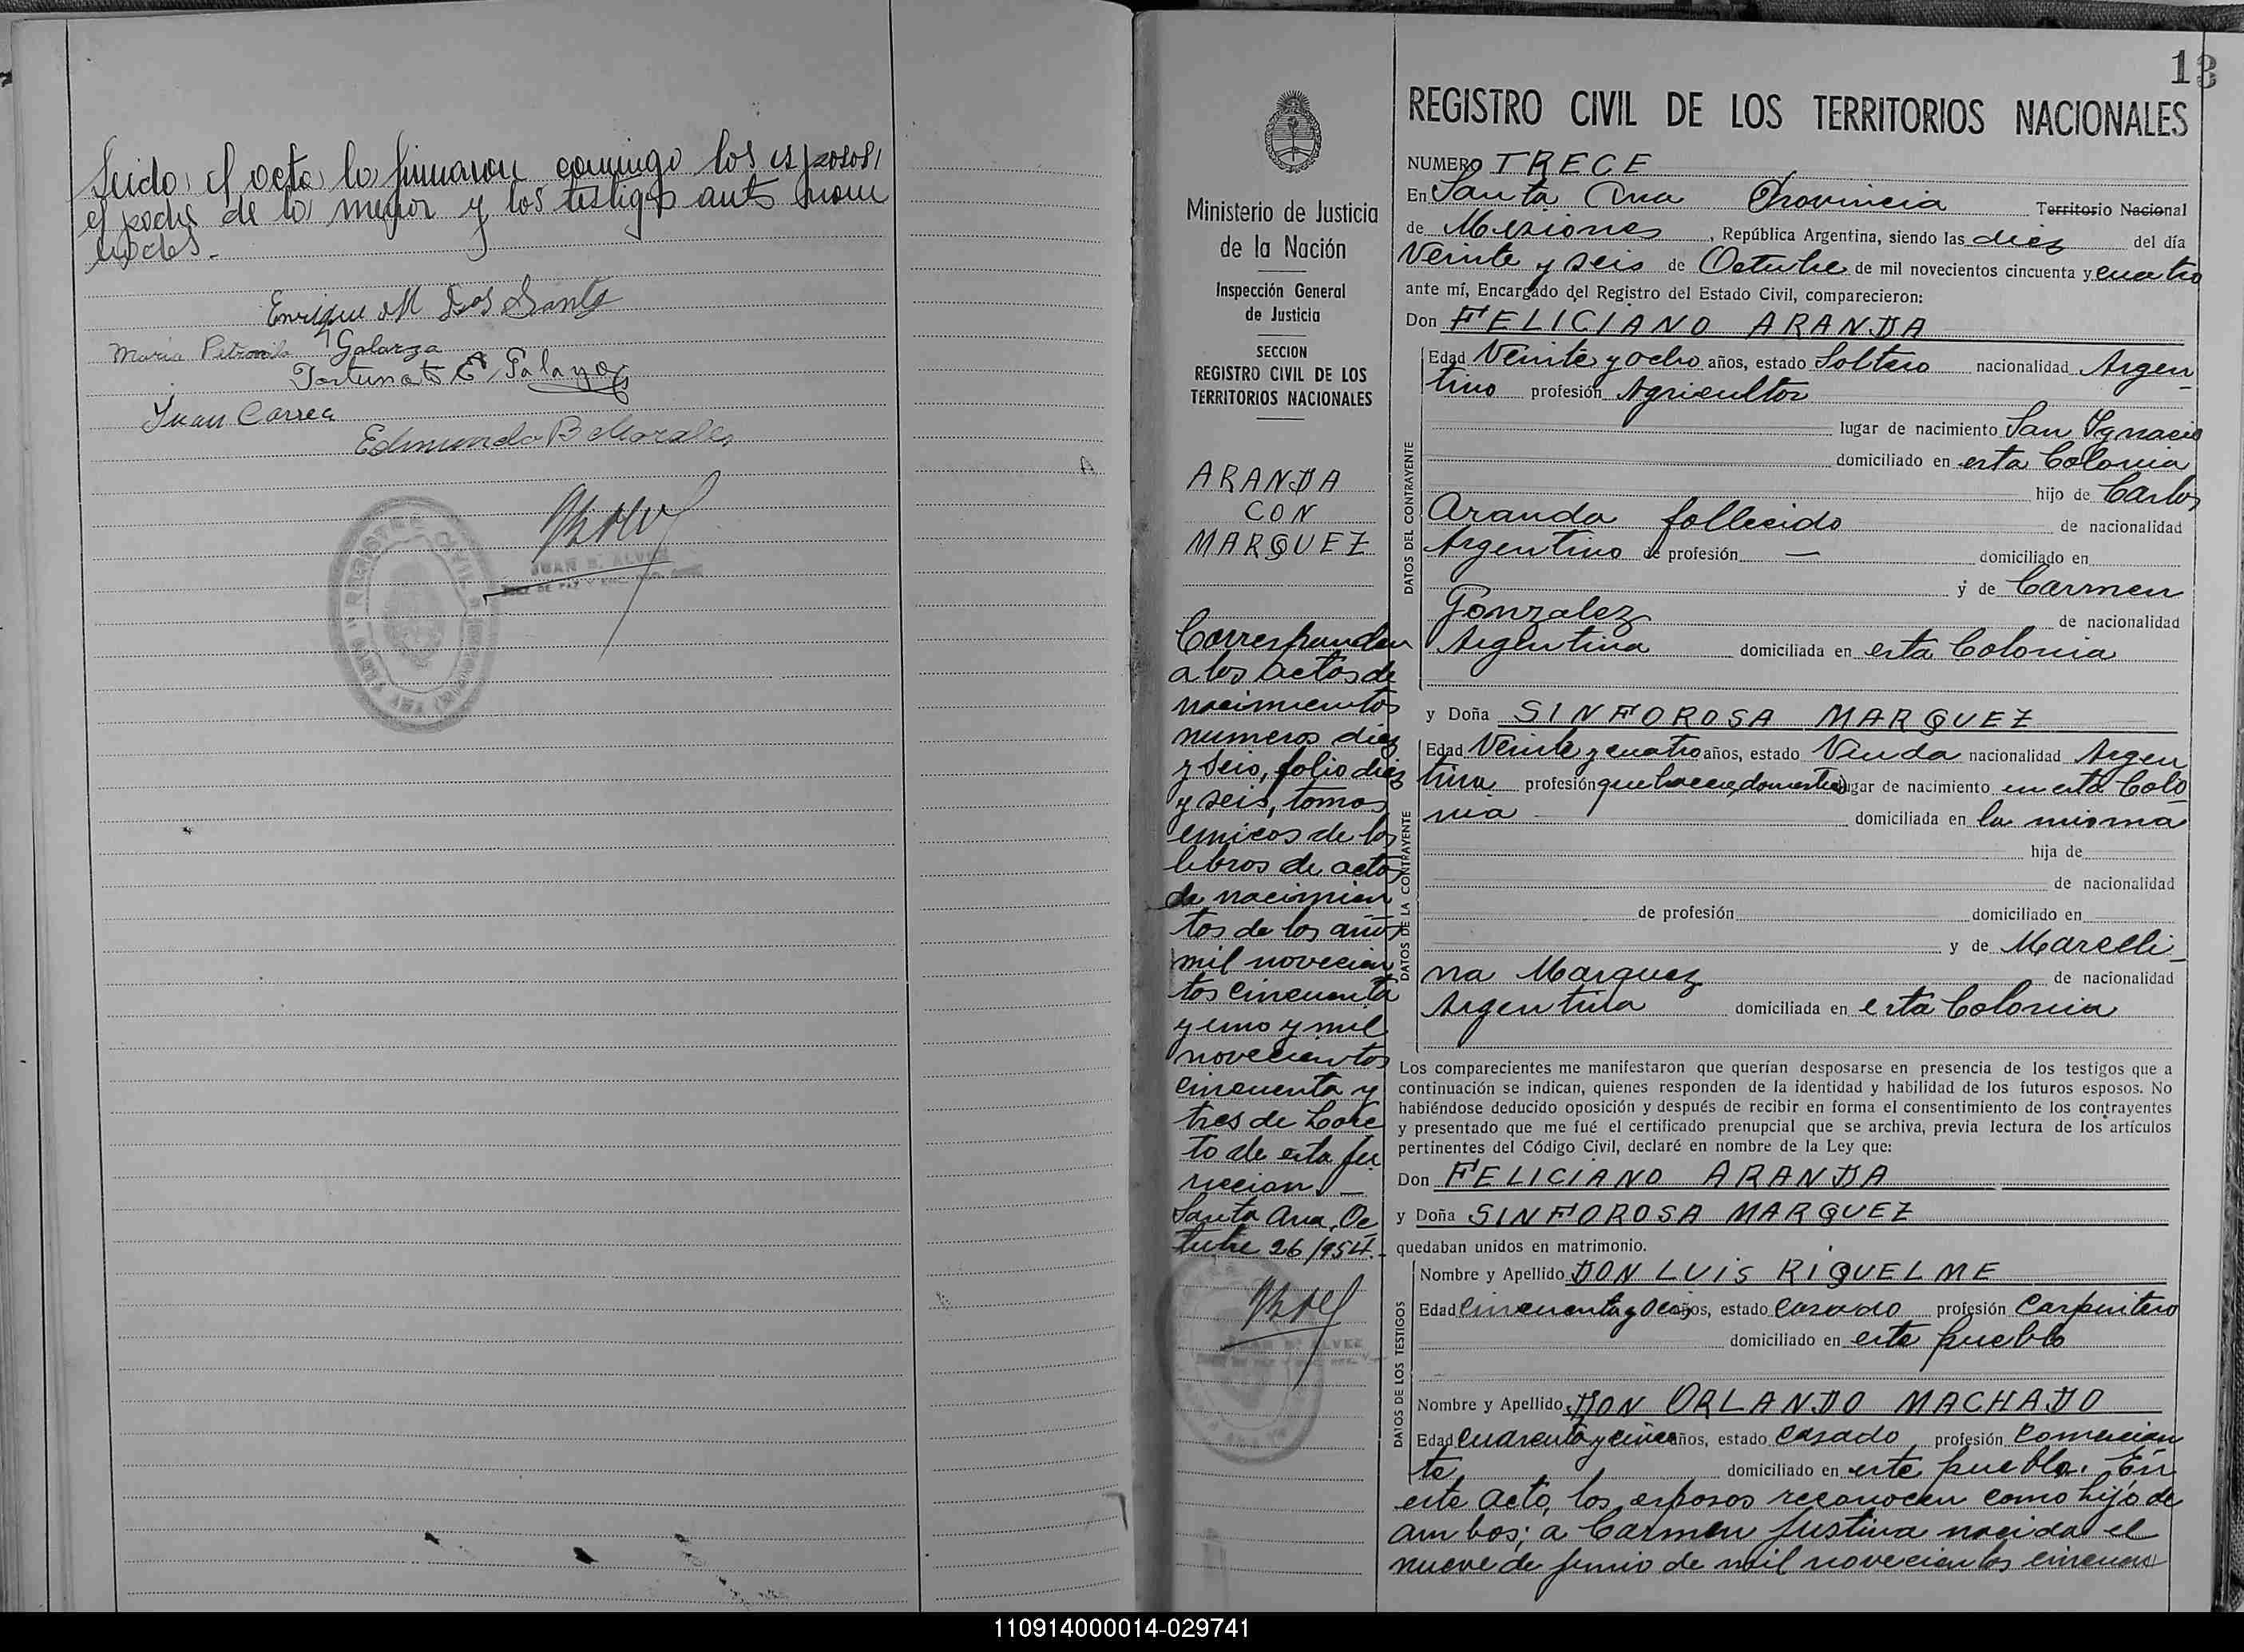 Leido el acta la firmaron conmigo los esposos,
el padre de la menor y los testigos ants nom
brados.-
Enrique M Dos Santos
Maria Petronila Galarza
Fortunato E. Palayo
Juan Correa
Edmundo B Morales
JUAN B. ALVEZ
13
Ministerio de Justicia
de la Nación
Inspección General
de Justicia
SECCION
REGISTRO CIVIL DE LOS
TERRITORIOS NACIONALES
ARANDA
CON
MARQUEZ
Corresponden
a los actos de
nacimientos
numeros diez
y seis, folio diez
y seis, tomos
unicos de los
libros de actos
de nacimien
tos de los años
mil novecien
tos cincuenta
y uno y mil
novecientos
cincuenta y
tres de Lore
to de esta ju
riccion —
Santa Ana, Oc
tubre 26/954.-
REGISTRO CIVIL DE LOS TERRITORIOS NACIONALES
NUMERO TRECE
En Santa Ana Provincia Territorio Nacional
de Misiones, República Argentina, siendo las diez del día
Veinte y seis de Octubre de mil novecientos cincuenta y cuatro
ante mí, Encargado del Registro del Estado Civil, comparecieron:
Don FELICIANO ARANDA
DATOS DEL CONTRAYENTE
Edad Veinte y ocho años, estado Soltero nacionalidad Argen
tino profesión Agricultor
lugar de nacimiento San Ignacio
domiciliado en esta Colonia
hijo de Carlos
Aranda fallecido de nacionalidad
Argentino de profesión — domiciliado en
y de Carmen
Gonzalez de nacionalidad
Argentina domiciliada en esta Colonia
y Doña SINFOROSA MARQUEZ
DATOS DE LA CONTRAYENTE
Edad Veinte y cuatro años, estado Viuda nacionalidad Argen
tina profesión quehaceres domesticos lugar de nacimiento en esta Colo
nia domiciliada en la misma
hija de
de nacionalidad
de profesión domiciliado en
y de Marceli
na Marquez de nacionalidad
Argentina domiciliada en esta Colonia
Los comparecientes me manifestaron que querían desposarse en presencia de los testigos que a
continuación se indican, quienes responden de la identidad y habilidad de los futuros esposos. No
habiéndose deducido oposición y después de recibir en forma el consentimiento de los contrayentes
y presentado que me fué el certificado prenupcial que se archiva, previa lectura de los artículos
pertinentes del Código Civil, declaré en nombre de la Ley que:
Don FELICIANO ARANDA
y Doña SINFOROSA MARQUEZ
quedaban unidos en matrimonio.
DATOS DE LOS TESTIGOS
Nombre y Apellido DON LUIS RIQUELME
Edad cincuenta y ocho años, estado casado profesión Carpintero
domiciliado en este pueblo
Nombre y Apellido DON ORLANDO MACHADO
Edad cuarenta y cinco años, estado casado profesión Comercian
te domiciliado en este pueblo. En
este acto, los esposos reconocen como hijo de
ambos; a Carmen Justina nacida el
nueve de junio de mil novecientos cincuen
110914000014-029741